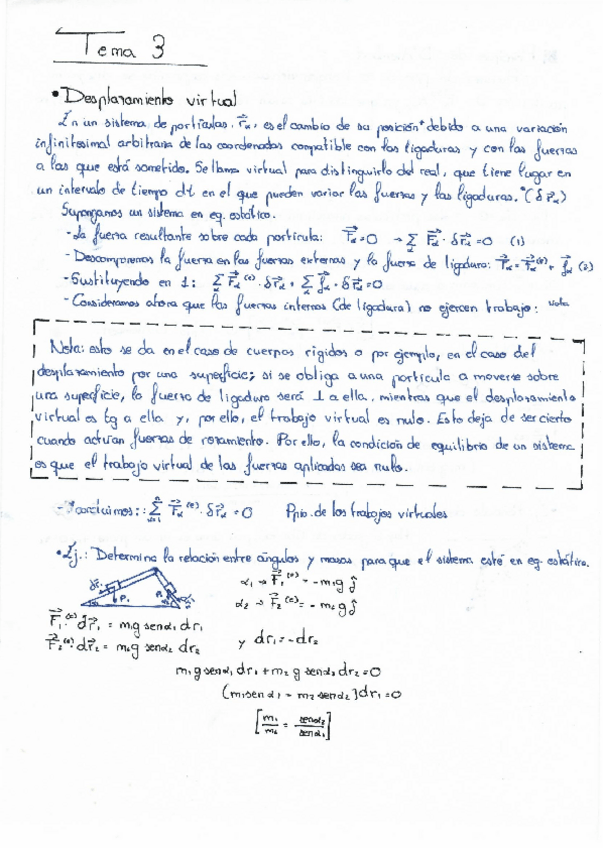 Tema 3
• Desplazamiento virtual
En un sistema de partículas, r⃗α, es el cambio de su posición debido a una variación
infinitesimal arbitraria de las coordenadas compatible con las ligaduras y con las fuerzas
a las que está sometido. Se llama virtual para distinguirlo del real, que tiene lugar en
un intervalo de tiempo dt en el que pueden variar las fuerzas y las ligaduras. *(δr⃗α)
Supongamos un sistema en eq. estático.
- La fuerza resultante sobre cada partícula: F⃗α = 0 → Σα F⃗α · δr⃗α = 0 (1)
- Descomponemos la fuerza en las fuerzas externas y la fuerza de ligadura: F⃗α = F⃗α^(e) + f⃗α (2)
- Sustituyendo en 1: Σα F⃗α^(e) · δr⃗α + Σα f⃗α · δr⃗α = 0
- Consideramos ahora que las fuerzas internas (de ligadura) no ejercen trabajo: Nota
Nota: esto se da en el caso de cuerpos rígidos o por ejemplo, en el caso del
desplazamiento por una superficie; si se obliga a una partícula a moverse sobre
una superficie, la fuerza de ligadura será ⊥ a ella, mientras que el desplazamiento
virtual es tg a ella y, por ello, el trabajo virtual es nulo. Esto deja de ser cierto
cuando actúan fuerzas de rozamiento. Por ello, la condición de equilibrio de un sistema
es que el trabajo virtual de las fuerzas aplicadas sea nulo.
- Concluimos: Σ F⃗α^(e) · δr⃗α = 0 Ppio. de los trabajos virtuales
• Ej.: Determina la relación entre ángulos y masas para que el sistema esté en eq. estático.
P₁
α₁ → F⃗₁^(e) = -m₁g ĵ
α₂ → F⃗₂^(e) = -m₂g ĵ
F⃗₁^(e) · dr⃗₁ = m₁g senα₁ dr₁
F⃗₂^(e) · dr⃗₂ = m₂g senα₂ dr₂ y dr₁ = -dr₂
m₁g senα₁ dr₁ + m₂g senα₂ dr₂ = 0
(m₁senα₁ - m₂senα₂)dr₁ = 0
[m₁/m₂ = senα₂/senα₁]